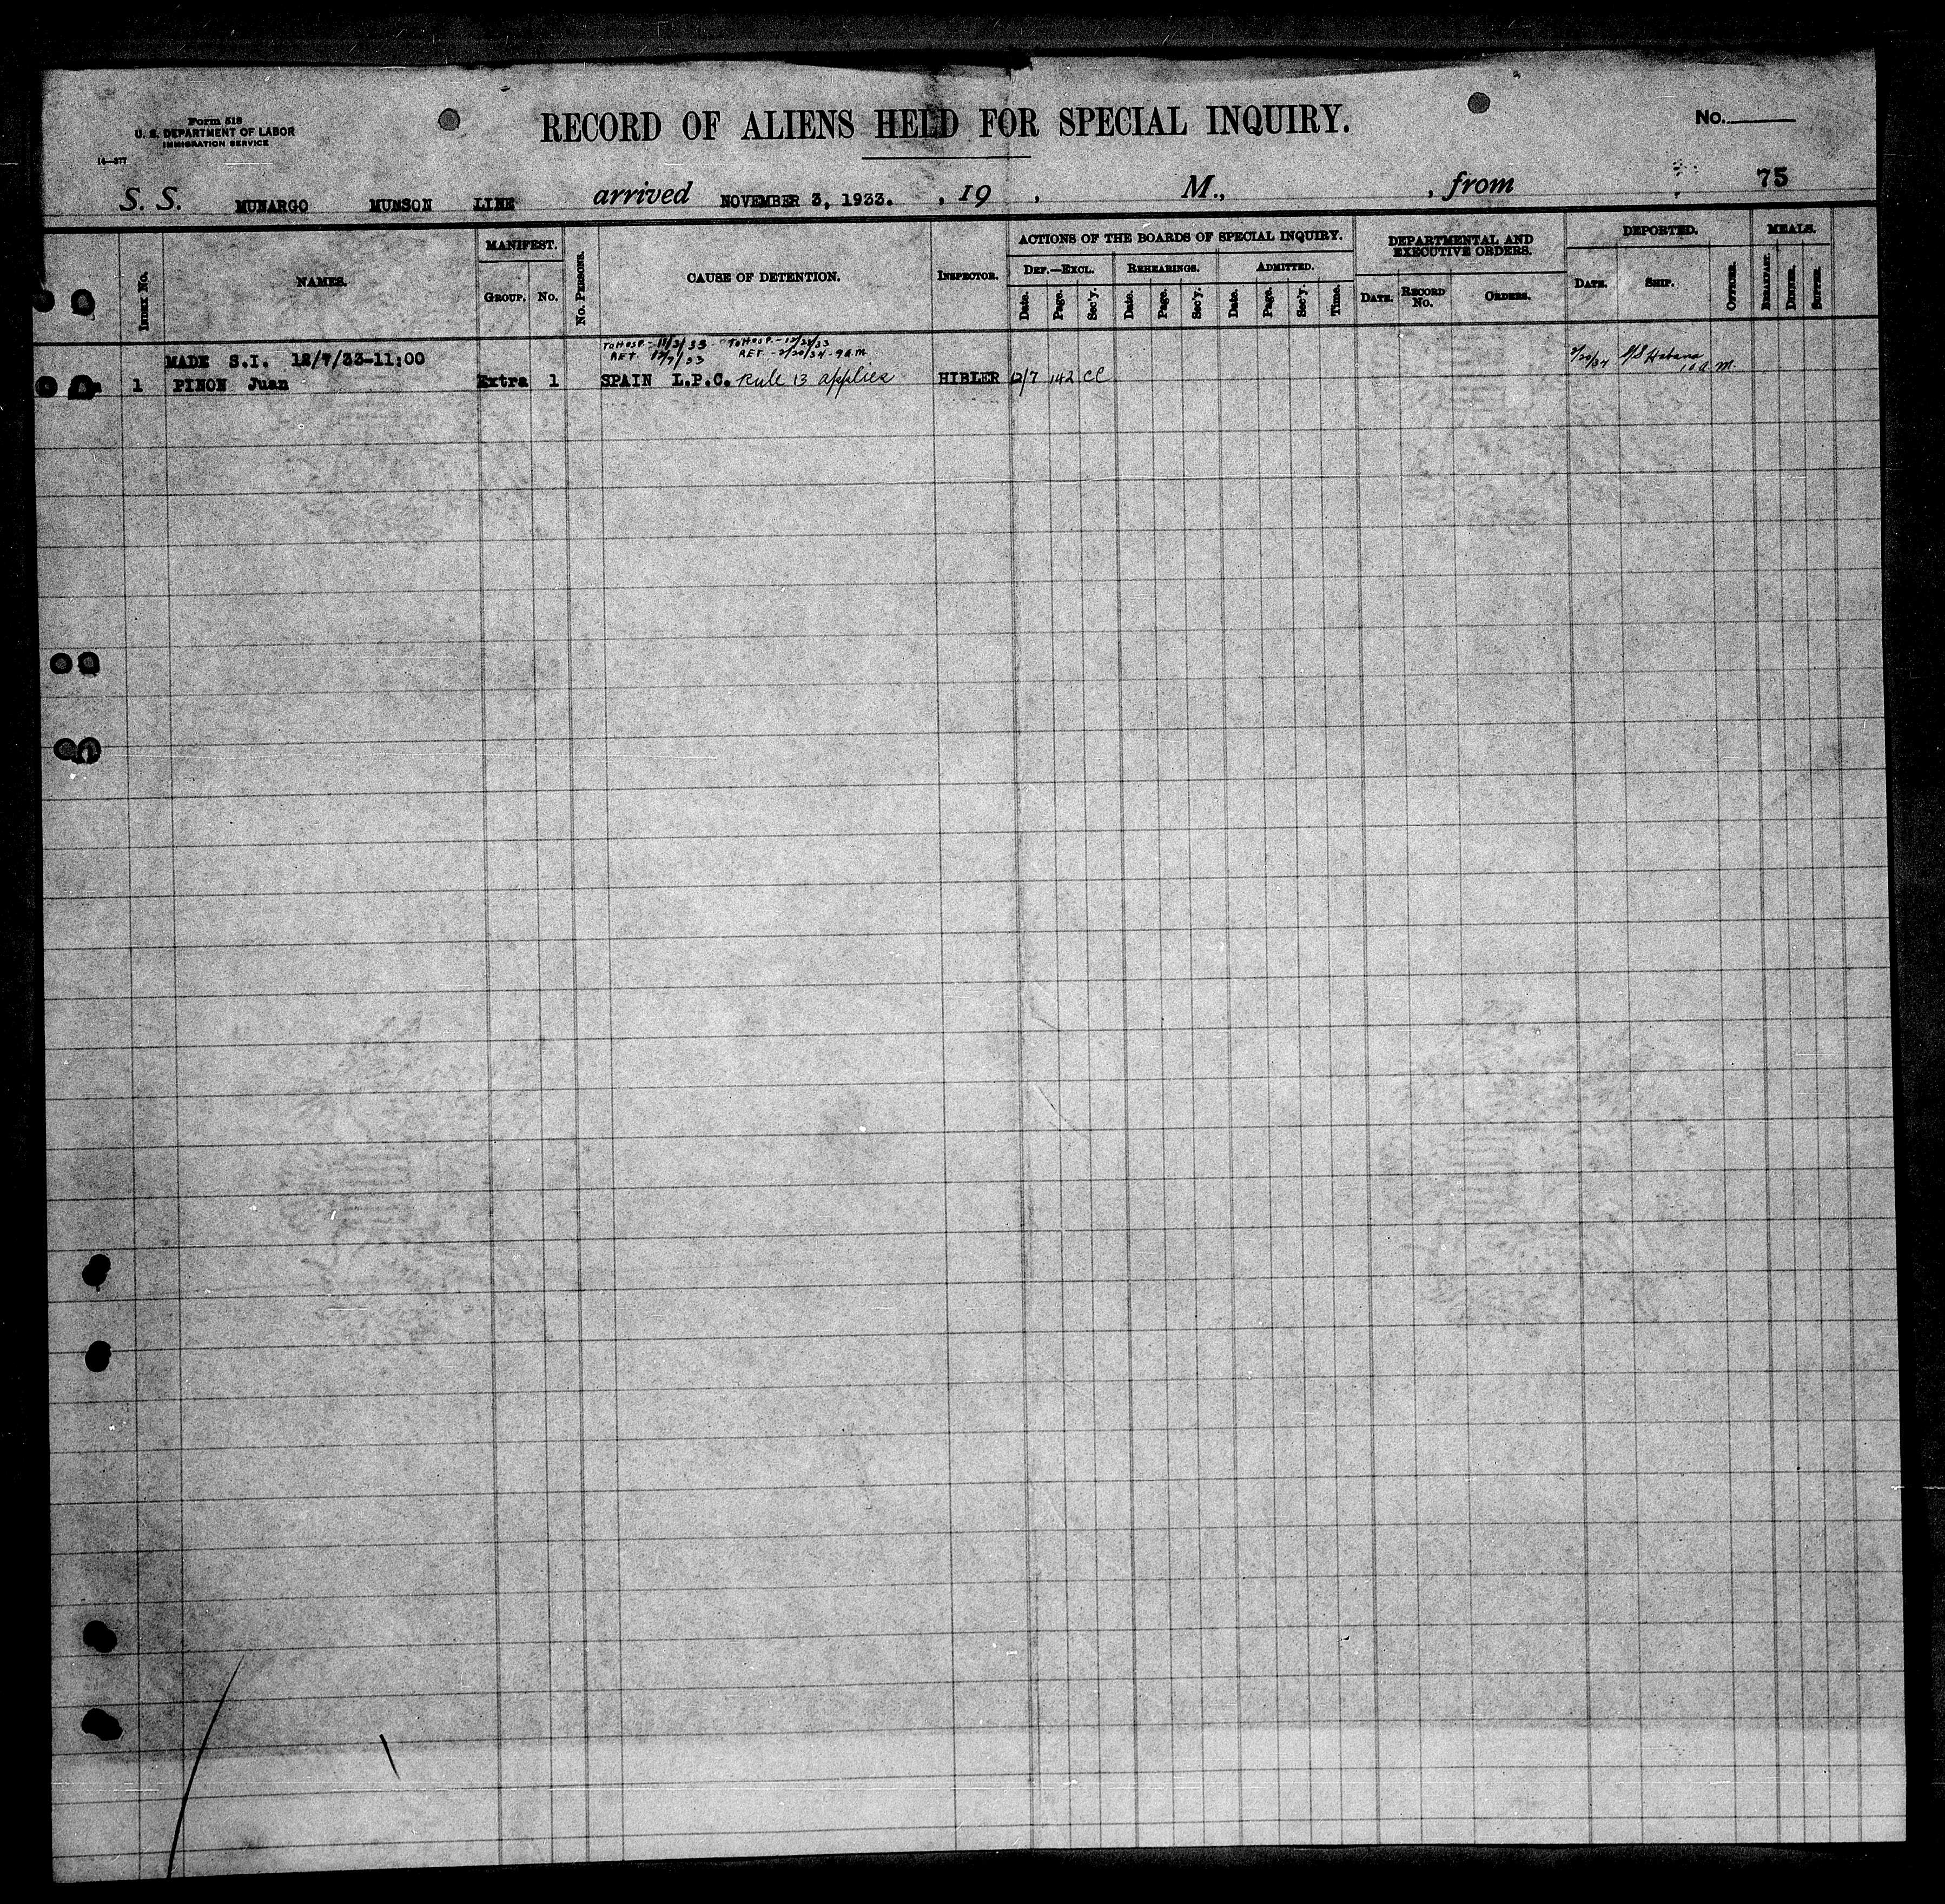 Form 518
U. S. DEPARTMENT OF LABOR
IMMIGRATION SERVICE
14—577
RECORD OF ALIENS HELD FOR SPECIAL INQUIRY.
No.
S. S. MUNARGO MUNSON LINE arrived NOVEMBER 3, 1933. , 19 , M., , from 75
Index No.
NAMES.
MANIFEST.
GROUP. No.
No. PERSONS.
CAUSE OF DETENTION.
INSPECTOR.
ACTIONS OF THE BOARDS OF SPECIAL INQUIRY.
DEF.—EXCL. REHEARINGS. ADMITTED.
Date. Page. Sec'y. Date. Page. Sec'y. Date. Page. Sec'y. Time.
DEPARTMENTAL AND EXECUTIVE ORDERS.
DATE. RECORD No. ORDERS.
DEPORTED.
DATE. SHIP. OFFICER.
MEALS.
BREAKFAST. DINNER. SUPPER.
TO HOSP.- 11/3/33 TO HOSP.-12/28/33
MADE S.I. 12/7/33-11:00 RET. 12/7/33 RET.-2/20/34-9AM 2/20/34 S/S Habana
1 PINON Juan Extra 1 SPAIN L.P.C. Rule 13 applies HIBLER 12/7 142 CC 10 A.M.